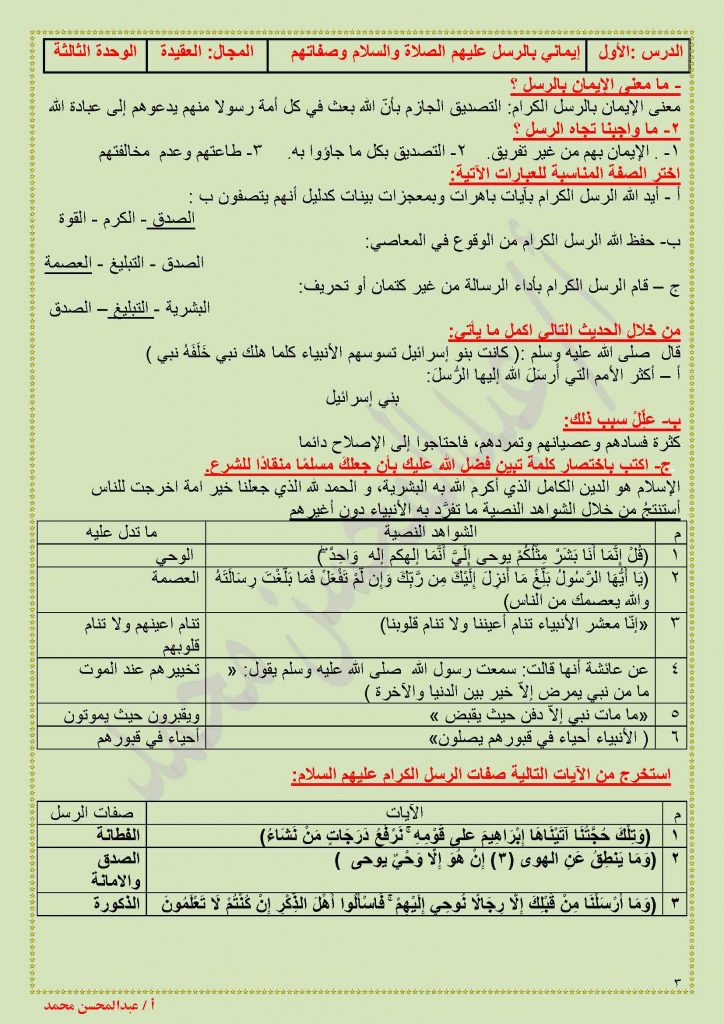 الدرس :الأول | إيماني بالرسل عليهم الصلاة والسلام وصفاتهم | المجال: العقيدة | الوحدة الثالثة
- ما معنى الإيمان بالرسل ؟
معنى الإيمان بالرسل الكرام: التصديق الجازم بأنّ الله بعث في كل أمة رسولا منهم يدعوهم إلى عبادة الله
٢- ما واجبنا تجاه الرسل ؟
١- . الإيمان بهم من غير تفريق. ٢- التصديق بكل ما جاؤوا به. ٣- طاعتهم وعدم مخالفتهم
اختر الصفة المناسبة للعبارات الآتية:
أ - أيد الله الرسل الكرام بآيات باهرات وبمعجزات بينات كدليل أنهم يتصفون ب :
الصدق - الكرم - القوة
ب- حفظ الله الرسل الكرام من الوقوع في المعاصي:
الصدق - التبليغ - العصمة
ج – قام الرسل الكرام بأداء الرسالة من غير كتمان أو تحريف:
البشرية - التبليغ – الصدق
من خلال الحديث التالي اكمل ما يأتي:
قال صلى الله عليه وسلم :( كانت بنو إسرائيل تسوسهم الأنبياء كلما هلك نبي خَلَفَهُ نبي )
أ – أكثر الأمم التي أرسَلَ الله إليها الرُّسلَ:
بني إسرائيل
ب- علِّلْ سبب ذلك:
كثرة فسادهم وعصيانهم وتمردهم، فاحتاجوا إلى الإصلاح دائما
ج- اكتب باختصار كلمة تبين فضْل الله عليك بأن جعلكَ مسلمًا منقادًا للشرع.
الإسلام هو الدين الكامل الذي أكرم الله به البشرية، و الحمد لله الذي جعلنا خير امة اخرجت للناس
أستنتجُ من خلال الشواهد النصية ما تفرَّد به الأنبياء دون أغيرهم
م | الشواهد النصية | ما تدل عليه
١ | (قُلْ إِنَّمَا أَنَا بَشَرٌ مِثْلُكُمْ يوحى إِلَيَّ أَنَّمَا إلهكم إله وَاحِدٌ ۖ) | الوحي
٢ | (يَا أَيُّهَا الرَّسُولُ بَلِّغْ مَا أُنزِلَ إِلَيْكَ مِن رَّبِّكَ وَإِن لَّمْ تَفْعَلْ فَمَا بَلَّغْتَ رِسَالَتَهُ | العصمة
والله يعصمك من الناس)
٣ | «إنّا معشر الأنبياء تنام أعيننا ولا تنام قلوبنا) | تنام اعينهم ولا تنام
قلوبهم
٤ | عن عائشة أنها قالت: سمعت رسول الله صلى الله عليه وسلم يقول: « | تخييرهم عند الموت
ما من نبي يمرض إلاّ خير بين الدنيا والآخرة )
٥ | «ما مات نبي إلاّ دفن حيث يقبض » | ويقبرون حيث يموتون
٦ | ( الأنبياء أحياء في قبورهم يصلون» | أحياء في قبورهم
استخرج من الآيات التالية صفات الرسل الكرام عليهم السلام:
م | الآيات | صفات الرسل
١ | (وَتِلْكَ حُجَّتُنَا آتَيْنَاهَا إِبْرَاهِيمَ على قَوْمِهِ ۚ نَرْفَعُ دَرَجَاتٍ مَنْ نَشَاءُ) | الفطانة
٢ | (وَمَا يَنطِقُ عَنِ الهوى (٣) إِنْ هُوَ إِلَّا وَحْيٌ يوحى ) | الصدق
والامانة
٣ | (وَمَا أَرْسَلْنَا مِنْ قَبْلِكَ إِلَّا رِجَالًا نُوحِي إِلَيْهِمْ ۚ فَاسْأَلُوا أَهْلَ الذِّكْرِ إِنْ كُنْتُمْ لَا تَعْلَمُونَ | الذكورة
٣
أ / عبدالمحسن محمد
أ / عبدالمحسن محمد